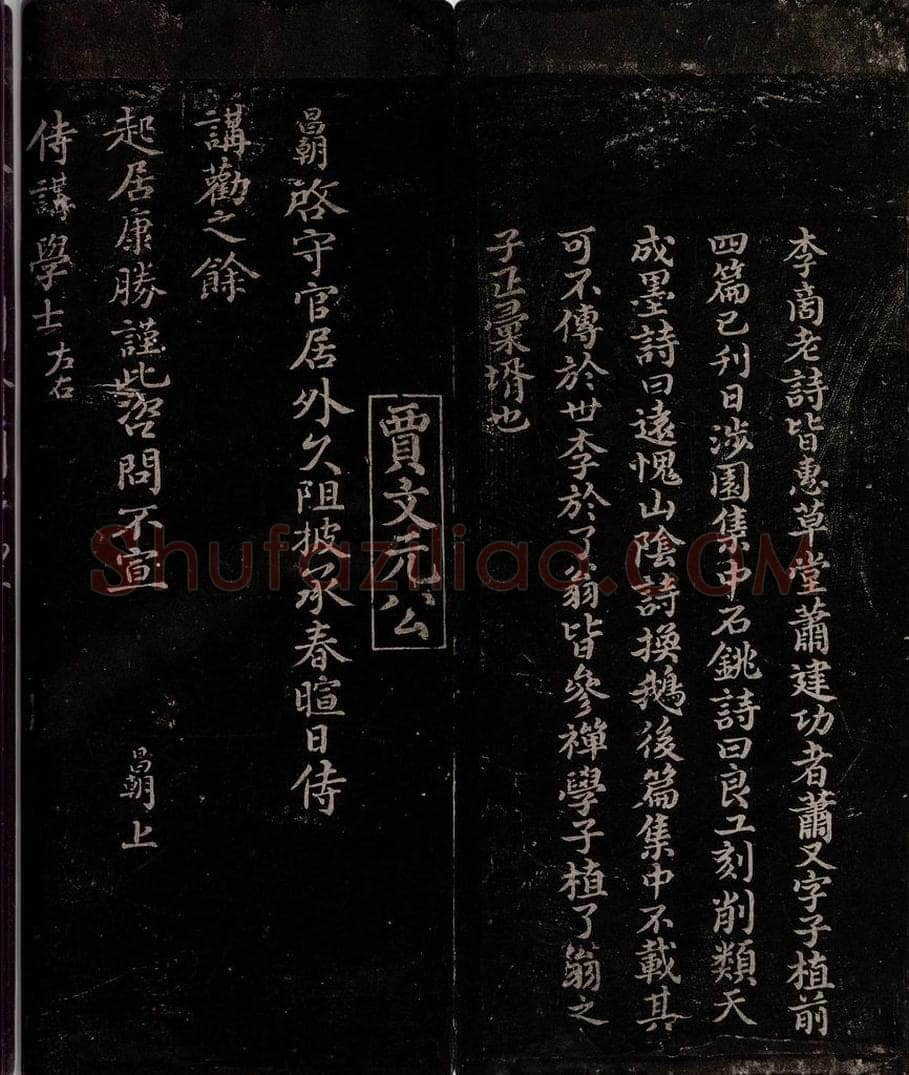 李商老詩皆惠草堂蕭建功者蕭又字子植前
四篇已刊日涉園集中石銚詩曰良工刻削類天
成墨詩曰遠愧山陰詩換鵝後篇集中不載其
可不傳於世李於了翁皆參禪學子植了翁之
子正彙壻也
賈文元公
昌朝啓守官居外久阻披承春暄日侍
講勸之餘
起居康勝謹此咨問不宣
昌朝上
侍講學士左右
Shufaziliao.COM